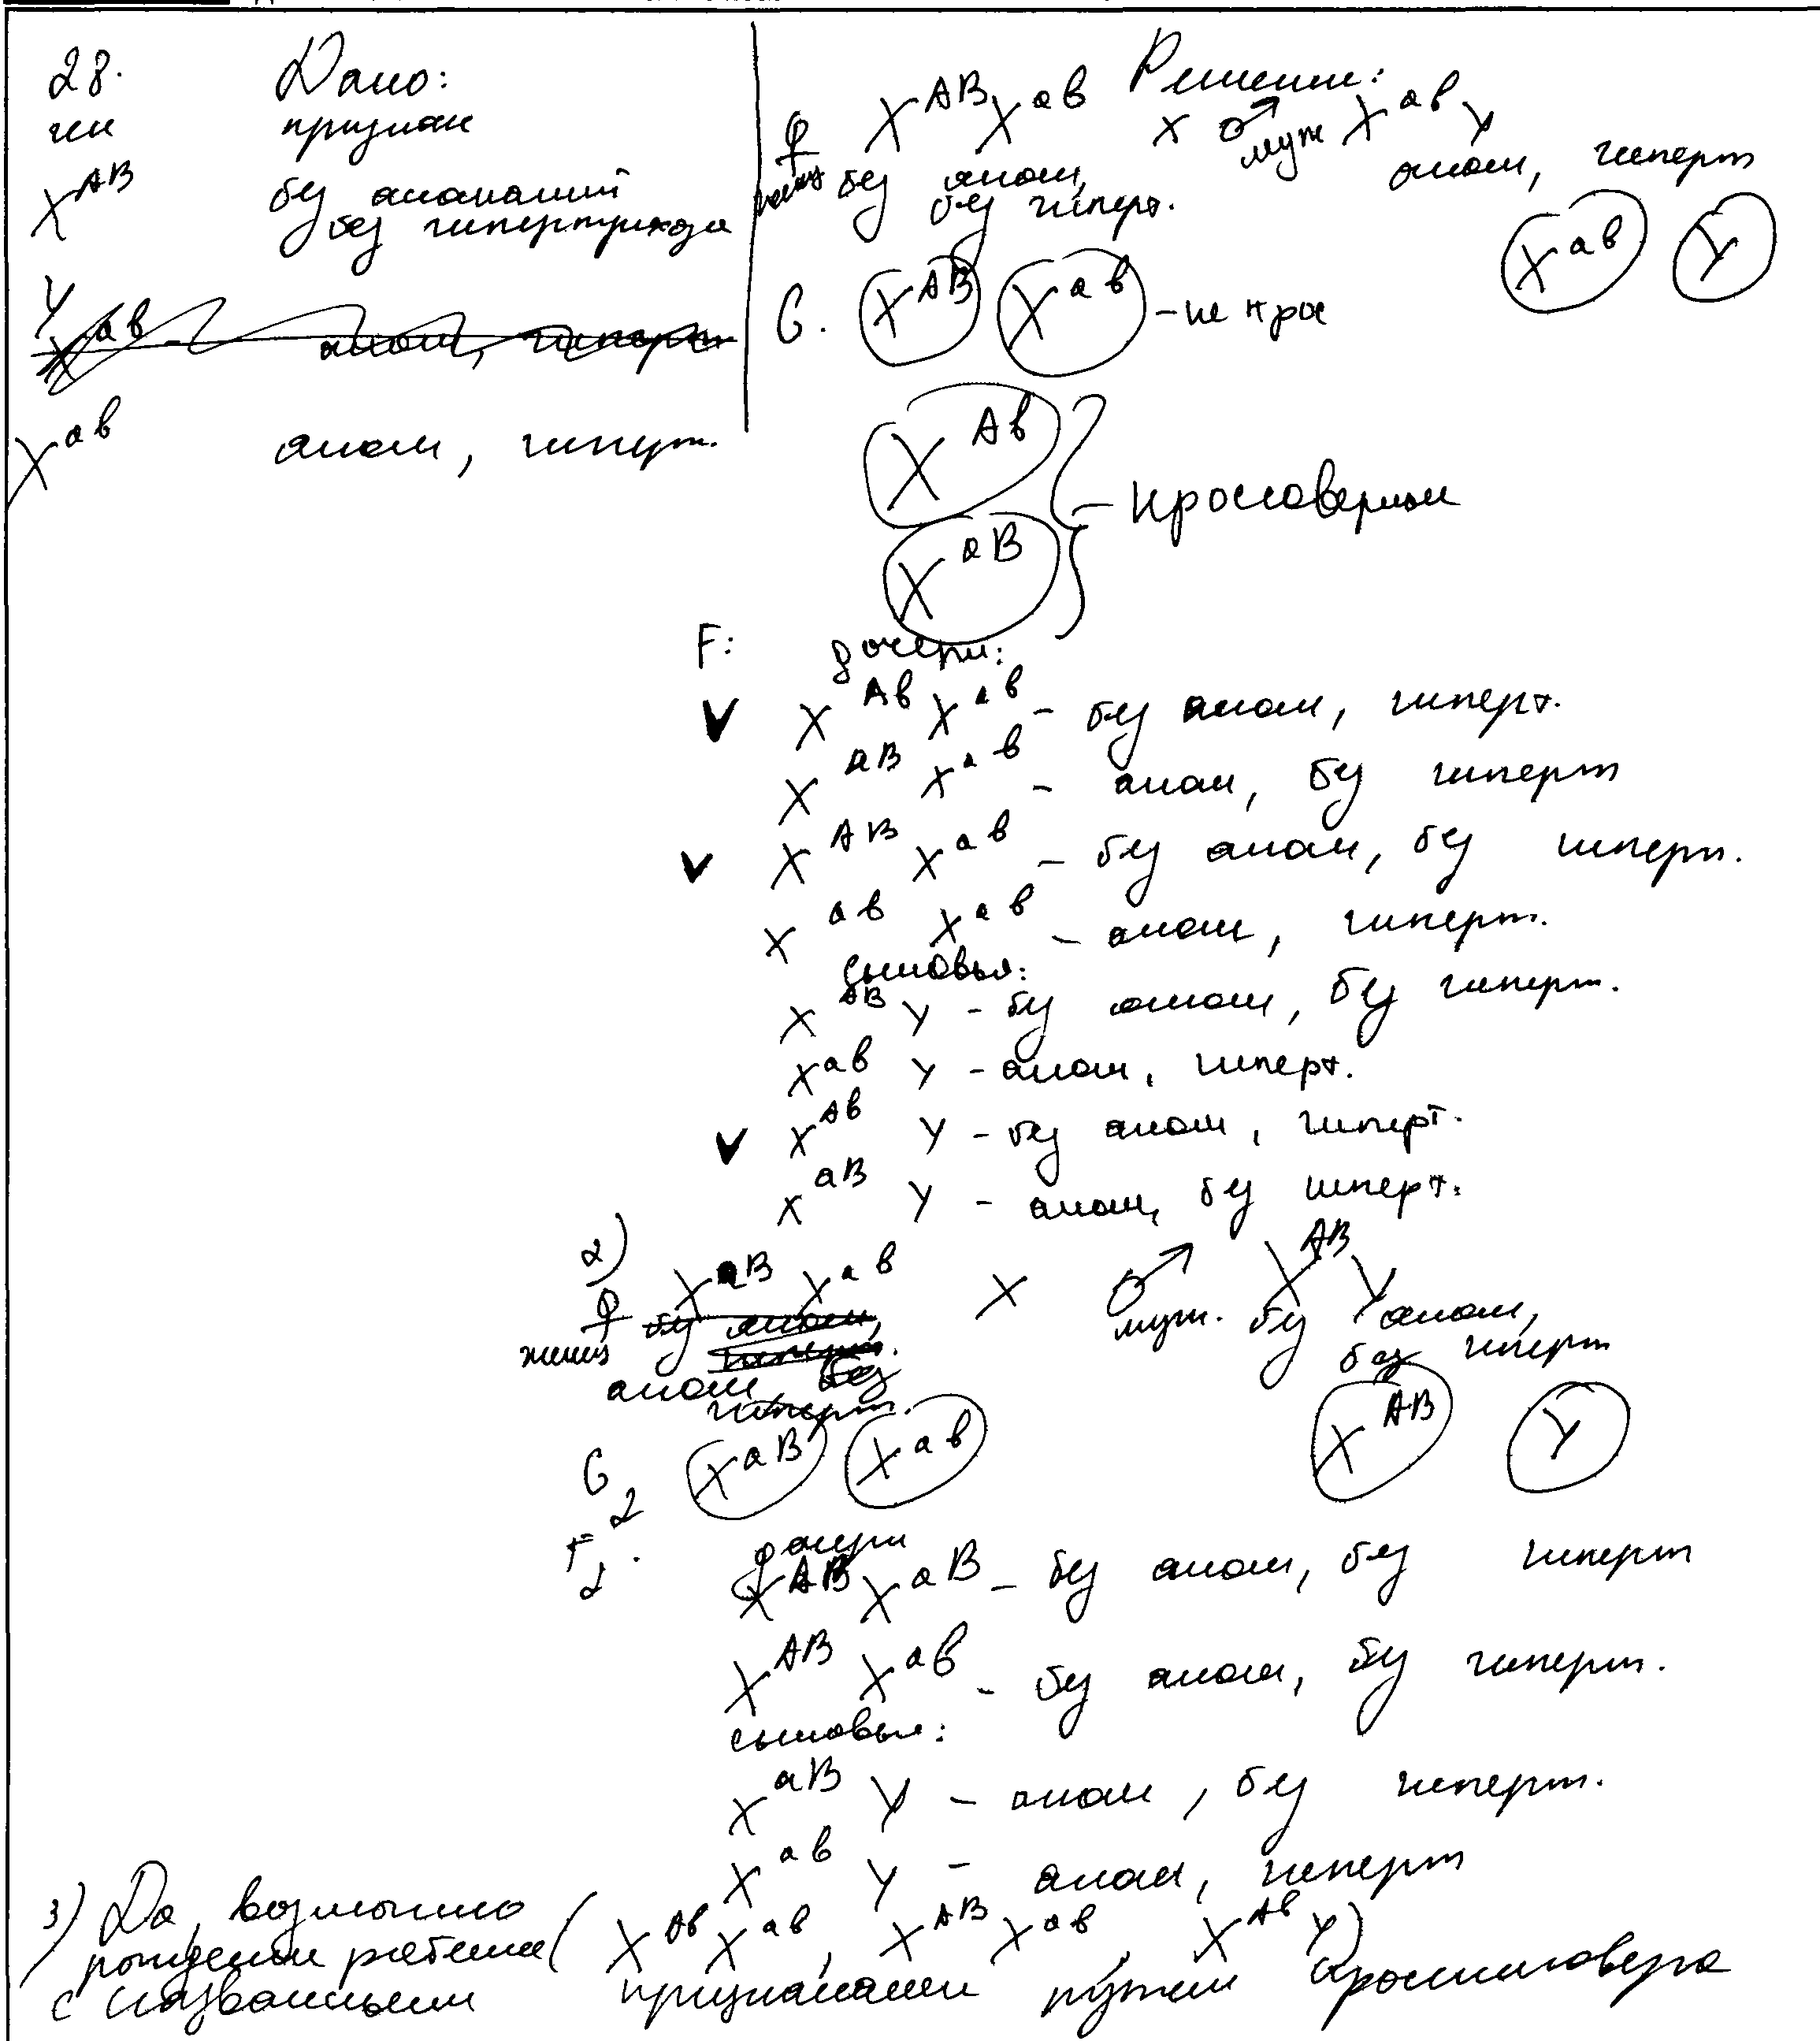 28. Дано:
ген признак
X^AB без аномалий
без гипертрихоза
Y
X^aв аном, гиперт.
X^aв аном, гиперт.
Решение:
♀ X^AB X^aв x ♂ муж X^aв Y
без аном, аном, гиперт
без гиперт.
G. X^AB X^aв - не крос X^aв Y
X^Aв
- кроссоверные
X^aB
F: дочери:
V X^Aв X^aв - без аном, гиперт.
X^aB X^aв - аном, без гиперт
V X^AB X^aв - без аном, без гиперт.
X^aв X^aв - аном, гиперт.
сыновья:
X^AB Y - без аном, без гиперт.
X^aв Y - аном, гиперт.
V X^Aв Y - без аном, гиперт.
X^aB Y - аном, без гиперт.
2)
♀ X^aB X^aв x ♂ X^AB Y
без аном, муж. без аном,
гиперт. без гиперт
аном, без
гиперт.
G2 X^aB X^aв X^AB Y
F2. дочери
X^AB X^aB - без аном, без гиперт
X^AB X^aв - без аном, без гиперт.
сыновья:
X^aB Y - аном, без гиперт.
X^aв Y - аном, гиперт
3) Да, возможно
рождение ребенка (X^Aв X^aв, X^AB X^aв, X^Aв Y)
с названными признаками путем кроссинговера